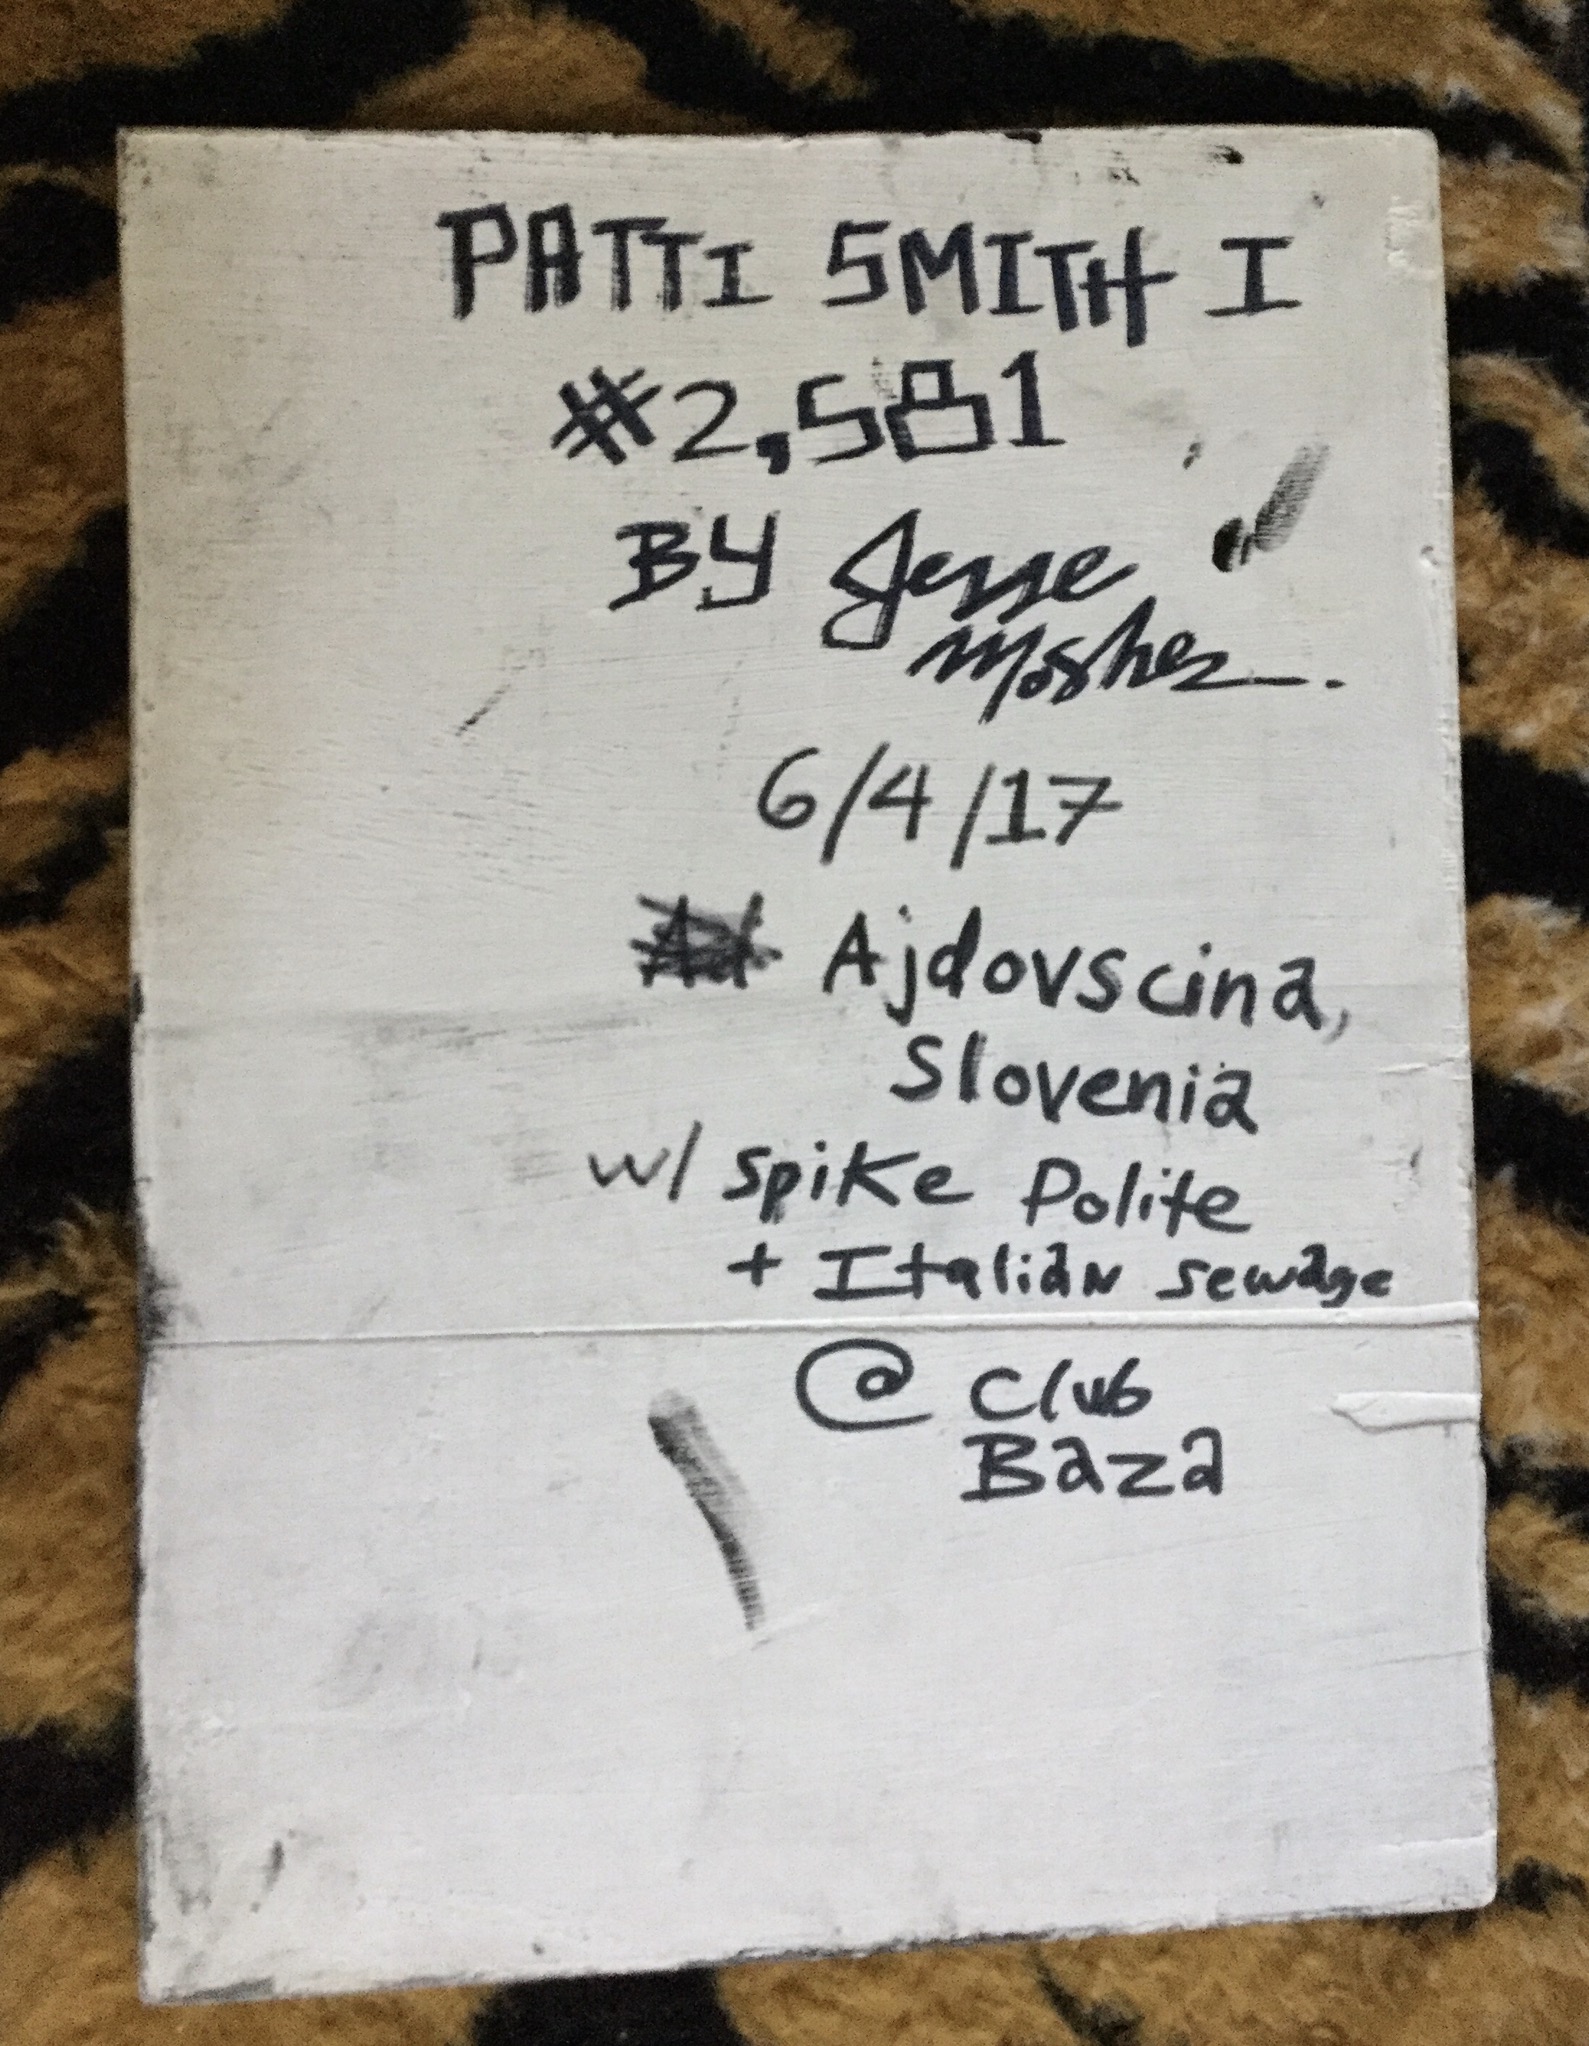 PATTI SMITH I
#2,581
BY Jesse
Mosher.
6/4/17
Ajdovscina,
Slovenia
w/ Spike Polite
+ Italian sewage
@ Club
Baza